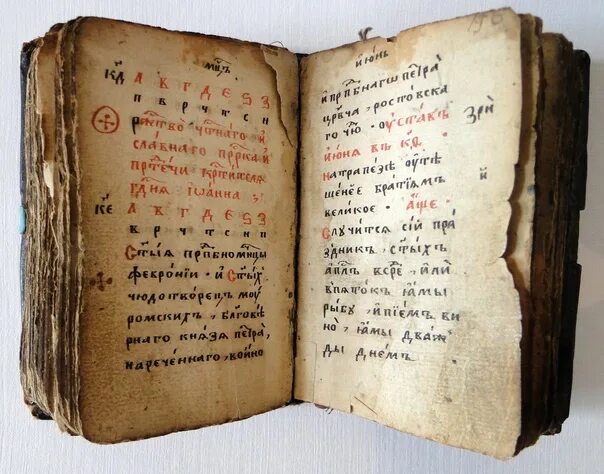 мц҃ъ
к҃д А В Г Д Е Ѕ З
п в р ч т с н
ржⷭтво чтⷭнаго и
славнаго прⷪрка и
прⷣтечи крⷭтителѧ
гдⷭнѧ іѡанна
к҃е А В Г Д Е Ѕ З
в р ч т с н п
Ст҃ыѧ прпⷣбномцⷱцы
февроніи · и ст҃ых
чюдотворецъ моу
ромскихъ, бл҃говѣ
рнаго кнѧзѧ петра,
нареченнаго, воино
июнь
и прпⷣбнагѡ петра
црⷭвча, ростовска
го чю · оуставъ зри
июнѧ въ к҃д
на трапезѣ оутѣ
шенее братиѧмъ й
великое · аще
Случитсѧ сїй пра
здникъ, ст҃ыхъ
ап҃лъ в срⷣе, или
в пѧтокъ ꙗмы
рыбу, и пїемъ ви
но, ꙗмы дваж
ды днемъ